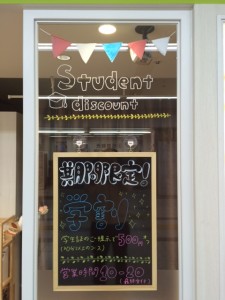 Student
discount
期間限定!
学割
学生証のご提示で500円
営業時間10-20